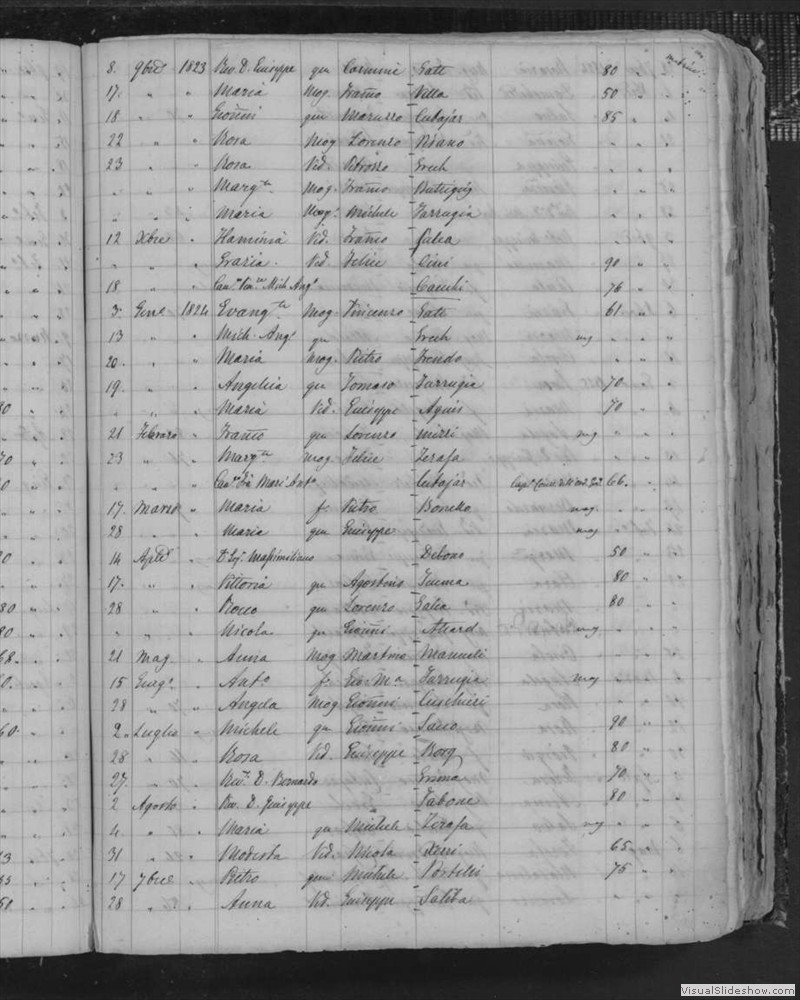 8. 9bre 1823 Rev. D. Giuseppe qm Carmine Gatt 80 "
17. " " Maria Mog. Franco Villa 50 "
18 " " Gionni qm Maruzzo Cutajar 85 "
22 " " Rosa Mog Lorenzo
23 " " Rosa Vid. Grech
" " " Margta Mog. Franco Buttigieg
" " " Maria Mog. Michele Farrugia
12 Xbre " Flaminia Vid. Franco Galea
" " " Grazia Vid. Felice Cini 90 "
18 " " Mich Ango Cauchi 76 "
3. Gen. 1824 Evangta Mog. Vincenzo Gatt 61 "
13 " " Mich. Ango qm Grech mg
20 " " Maria mog. Pietro Frendo
19. " " Angelica qm Tomaso Farrugia 70
" " " Maria Vid. Giuseppe Agius 70
21 Febraro " Franco qm Lorenzo mg
23 " " Margta mog. Felice Zerafa
" " " Mari Anto Cutajar 66.
17. Marzo " Maria f. Pietro Bonello mag.
28 " " Maria qm Giuseppe mag
14 Aple " Massimiliano Debono 50 "
17. " " Vittoria qm Agostino 80 "
28 " " Rocco qm Lorenzo Galea 80 "
" " " Nicola qm Gionni Attard mg
21 Mag. " Anna Mog Martino Manueli
15 Giugo. " Anto f. Gio: Ma Farrugia mag
28 " " Angela Mog Gionni Cuschieri
2. Luglio " Michele qm Gionni 90 "
28 " " Rosa Vid. Giuseppe Borg 80 "
27. " " Rev. D. Bernardo 70 "
2 Agosto " Rev. D. Giuseppe Tabone 80
4. " " Maria qm Michele Zerafa mg
31 " " Modesta Vid. Xerri 65 "
17 7bre " Pietro qm Michele Portelli 75 "
28 " " Anna Vid. Giuseppe Saliba
VisualSlideshow.com